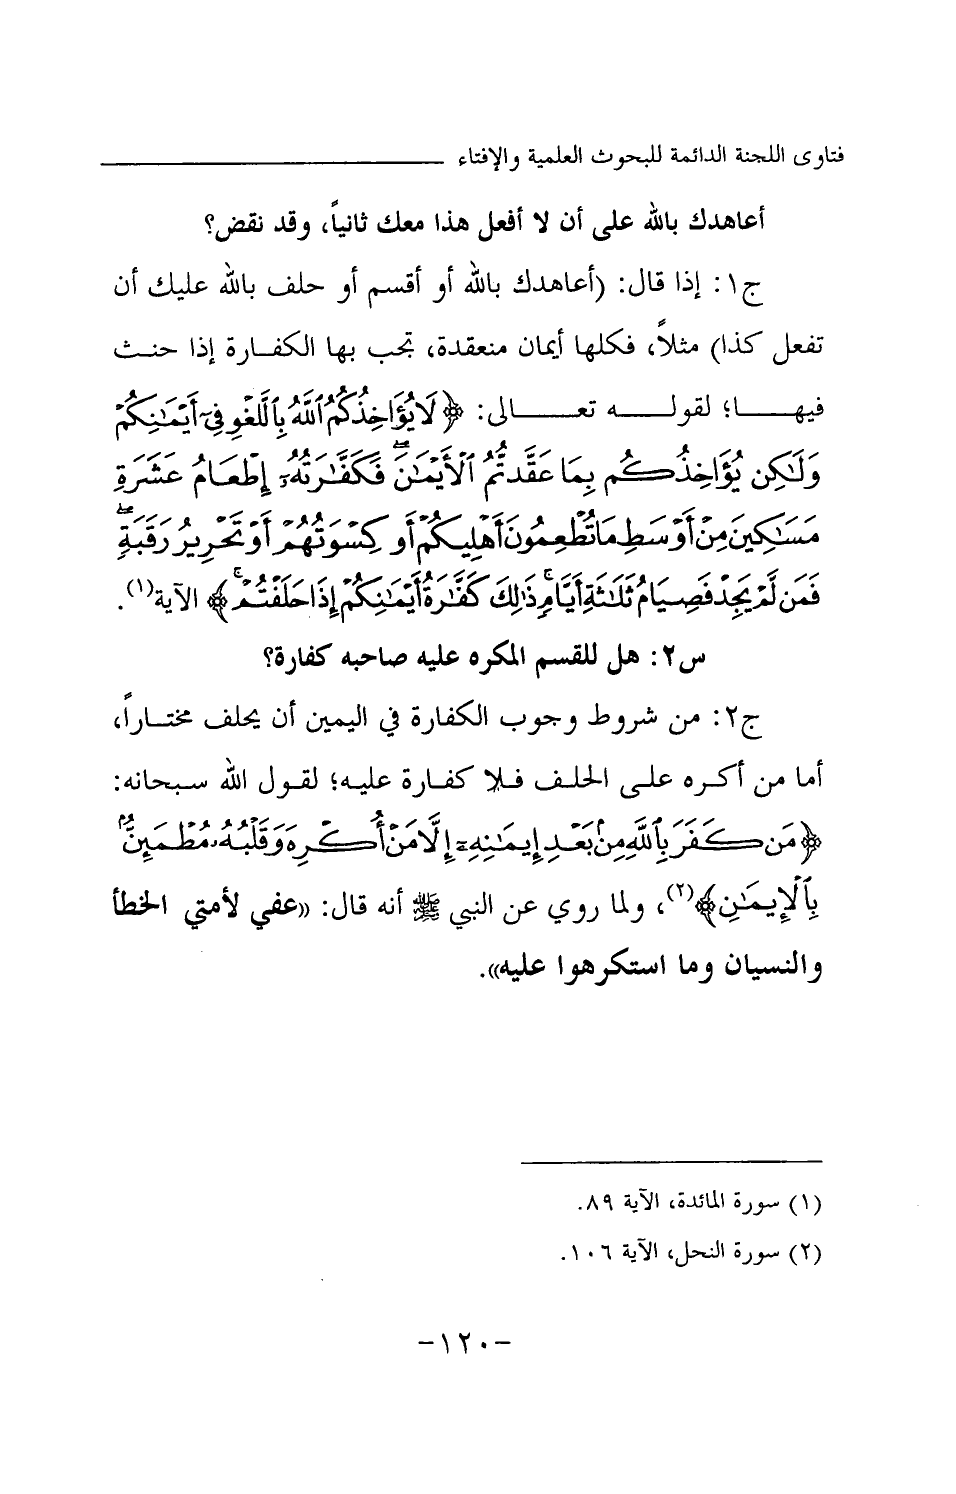 فتاوى اللجنة الدائمة للبحوث العلمية والإفتاء
أعاهدك بالله على أن لا أفعل هذا معك ثانياً، وقد نقض؟
ج١: إذا قال: (أعاهدك بالله أو أقسم أو حلف بالله عليك أن
تفعل كذا) مثلاً، فكلها أيمان منعقدة، تجب بها الكفارة إذا حنث
فيها؛ لقوله تعالى: ﴿لَا يُؤَاخِذُكُمُ ٱللَّهُ بِٱللَّغْوِ فِىٓ أَيْمَـٰنِكُمْ
وَلَـٰكِن يُؤَاخِذُكُم بِمَا عَقَّدتُّمُ ٱلْأَيْمَـٰنَ ۖ فَكَفَّـٰرَتُهُۥٓ إِطْعَامُ عَشَرَةِ
مَسَـٰكِينَ مِنْ أَوْسَطِ مَا تُطْعِمُونَ أَهْلِيكُمْ أَوْ كِسْوَتُهُمْ أَوْ تَحْرِيرُ رَقَبَةٍ ۖ
فَمَن لَّمْ يَجِدْ فَصِيَامُ ثَلَـٰثَةِ أَيَّامٍ ۚ ذَٰلِكَ كَفَّـٰرَةُ أَيْمَـٰنِكُمْ إِذَا حَلَفْتُمْ ۚ﴾ الآية(١).
س٢: هل للقسم المكره عليه صاحبه كفارة؟
ج٢: من شروط وجوب الكفارة في اليمين أن يحلف مختاراً،
أما من أكره على الحلف فلا كفارة عليه؛ لقول الله سبحانه:
﴿مَن كَفَرَ بِٱللَّهِ مِنۢ بَعْدِ إِيمَـٰنِهِۦٓ إِلَّا مَنْ أُكْرِهَ وَقَلْبُهُۥ مُطْمَئِنٌّۢ
بِٱلْإِيمَـٰنِ﴾(٢)، ولما روي عن النبي ﷺ أنه قال: «عفي لأمتي الخطأ
والنسيان وما استكرهوا عليه».
(١) سورة المائدة، الآية ٨٩.
(٢) سورة النحل، الآية ١٠٦.
-١٢٠-